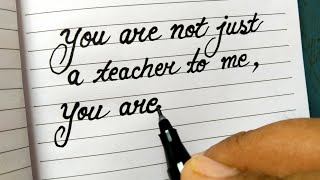 You are not just
a teacher to me,
You are